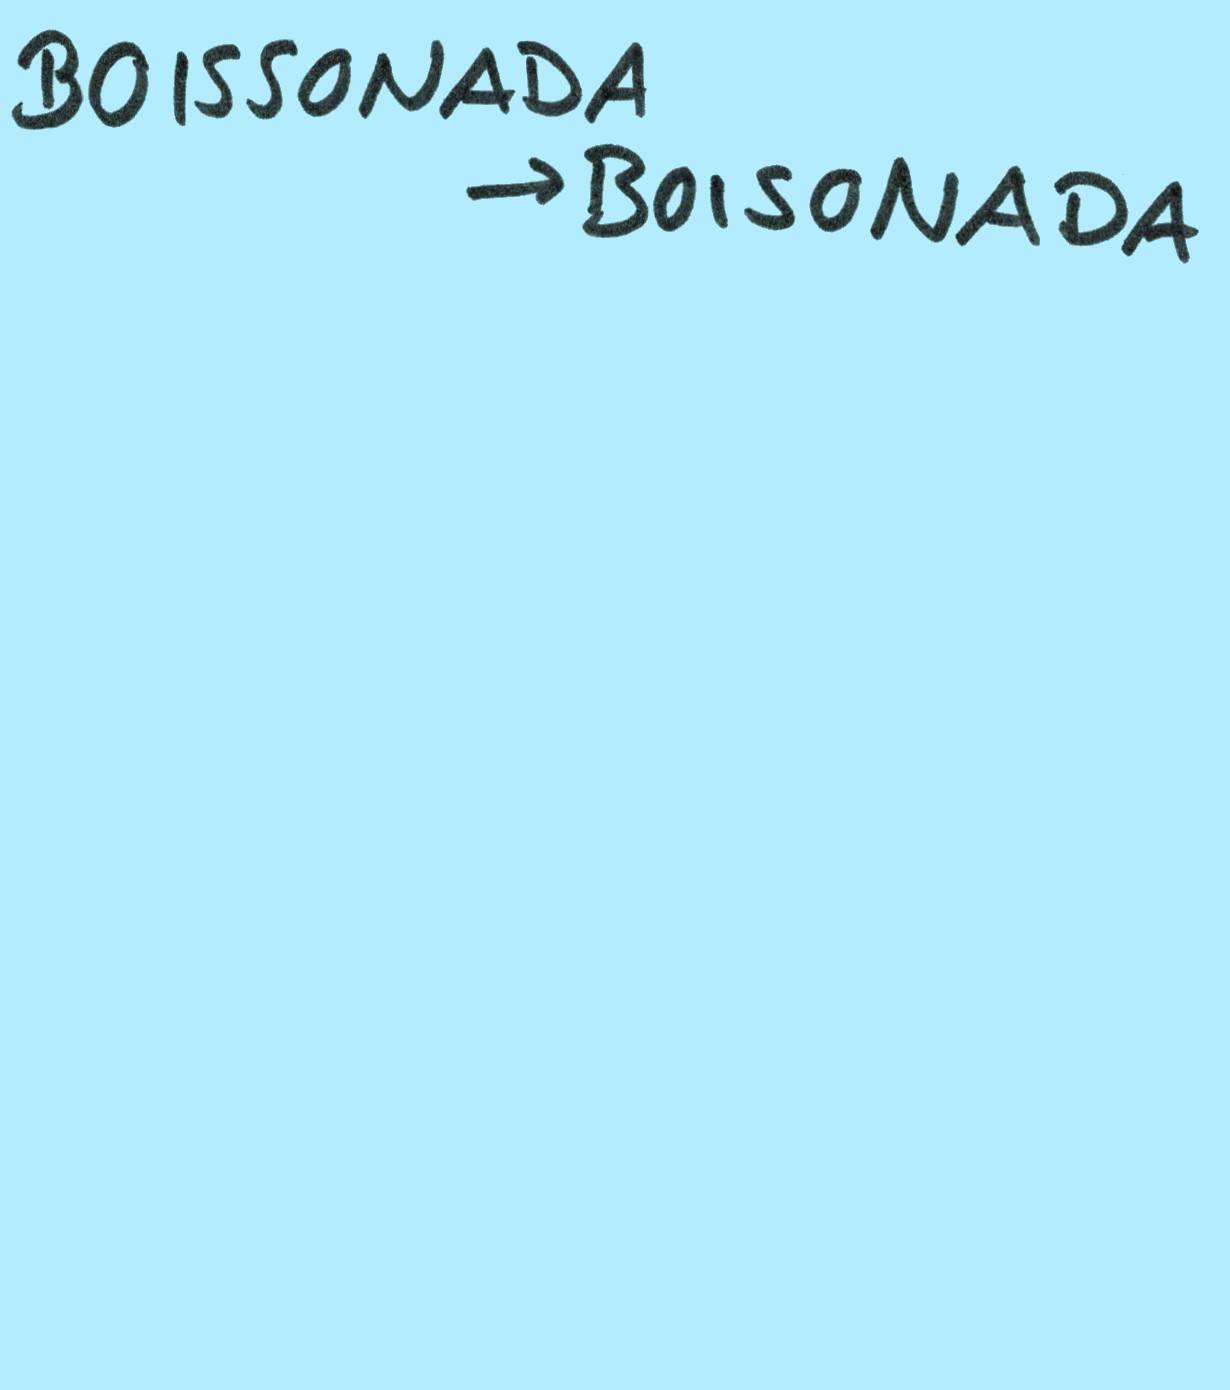 BOISSONADA
→ BOISONADA